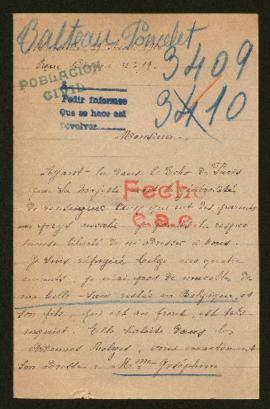 Balteau Poncelet
3409
3410
POBLACION
CIVIL
Pedir informes
Que se hace así
devolver
Monsieur
Ayant lu dans l'Echo de Paris
que Sa Majesté
de renseigner ceux qui ont des parents
en pays envahi je prends la respec
tueuse liberté de m'adresser à vous.
Fecho
Je suis réfugiée belge avec quatre
enfants. Je n'ai pas de nouvelles de
ma belle-sœur restée en Belgique, et
son fils, qui est au front, est très
inquiet. Elle habite dans les
Ardennes Belges, voici exactement
son adresse: Mme Joséphine